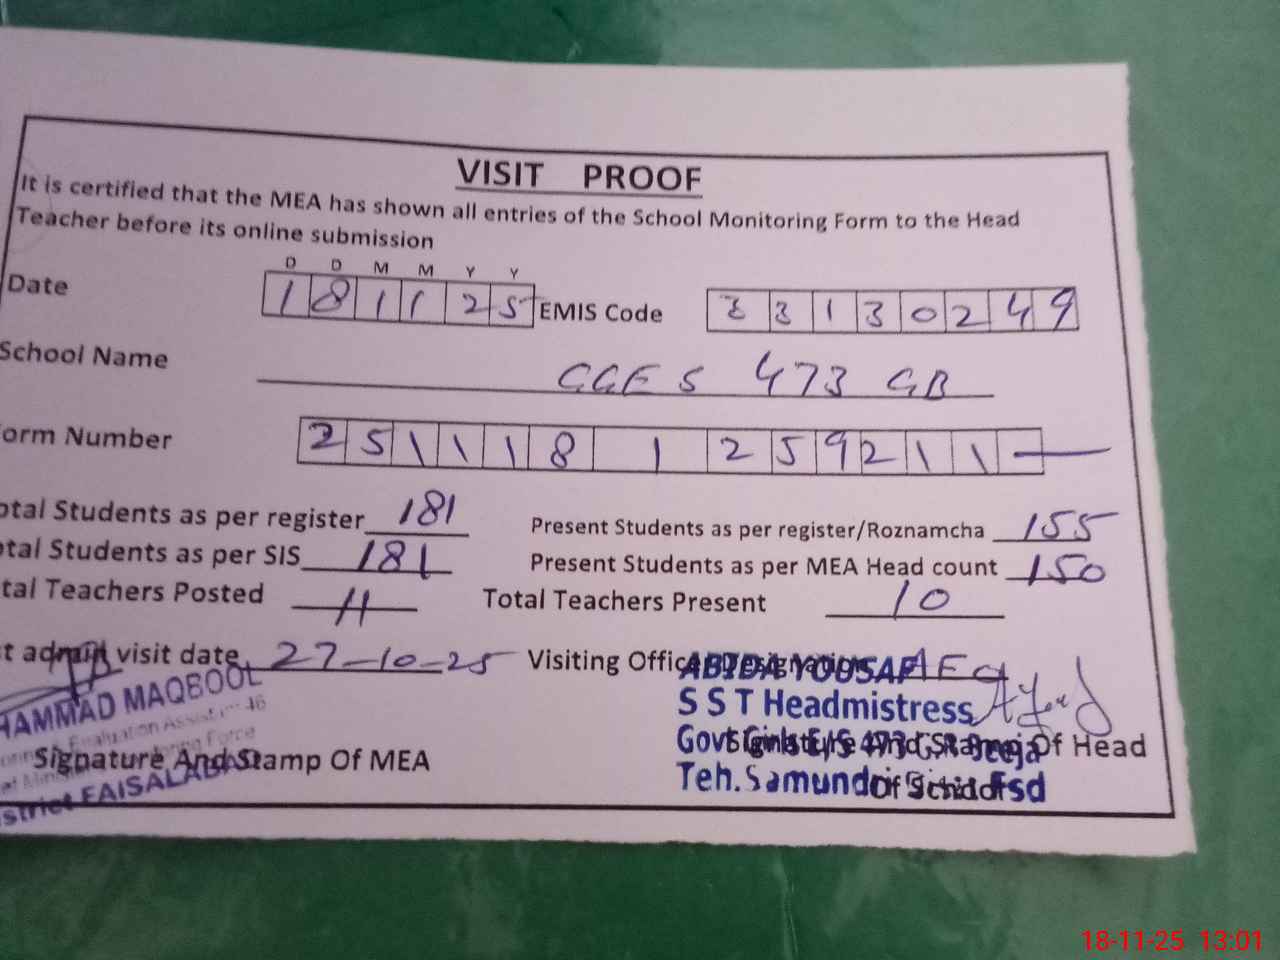 VISIT PROOF
It is certified that the MEA has shown all entries of the School Monitoring Form to the Head
Teacher before its online submission
D D M M Y Y
Date 1 8 1 1 2 5 EMIS Code 3 3 1 3 0 2 4 9
School Name GGES 473 GB
orm Number 2 5 1 1 1 8 1 2 5 9 2 1 1 —
otal Students as per register 181 Present Students as per register/Roznamcha 155
otal Students as per SIS 181 Present Students as per MEA Head count 150
tal Teachers Posted 11 Total Teachers Present 10
t admin visit date 27-10-25 Visiting Officer Designation AEO
HAMMAD MAQBOOL
Evaluation Assistant 46
Monitoring Force
strict FAISALABAD
Signature And Stamp Of MEA
ABIDA YOUSAF
S S T Headmistress
Govt Girls E/S 473 G.B
Teh. Samundri Fsd
Signature And Stamp Of Head
Of School
18-11-25 13:01